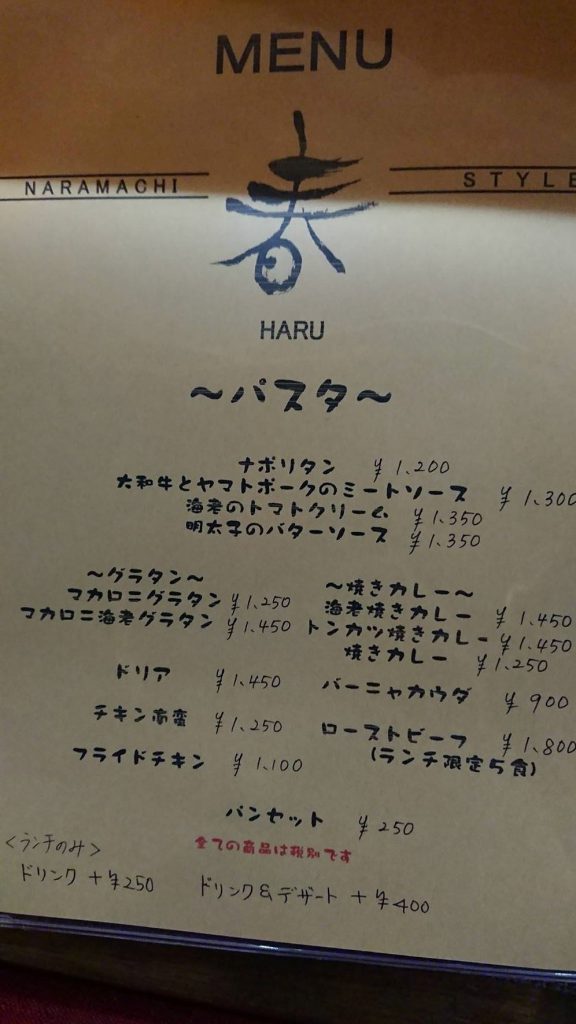 MENU
NARAMACHI 春 STYLE
HARU
～パスタ～
ナポリタン ¥1,200
大和牛とヤマトポークのミートソース ¥1,300
海老のトマトクリーム ¥1,350
明太子のバターソース ¥1,350
～グラタン～
マカロニグラタン ¥1,250
マカロニ海老グラタン ¥1,450
～焼きカレー～
海老焼きカレー ¥1,450
トンカツ焼きカレー ¥1,450
焼きカレー ¥1,250
ドリア ¥1,450
バーニャカウダ ¥900
チキン南蛮 ¥1,250
ローストビーフ ¥1,800
(ランチ限定5食)
フライドチキン ¥1,100
パンセット ¥250
全ての商品は税別です
<ランチのみ>
ドリンク +¥250
ドリンク&デザート +¥400